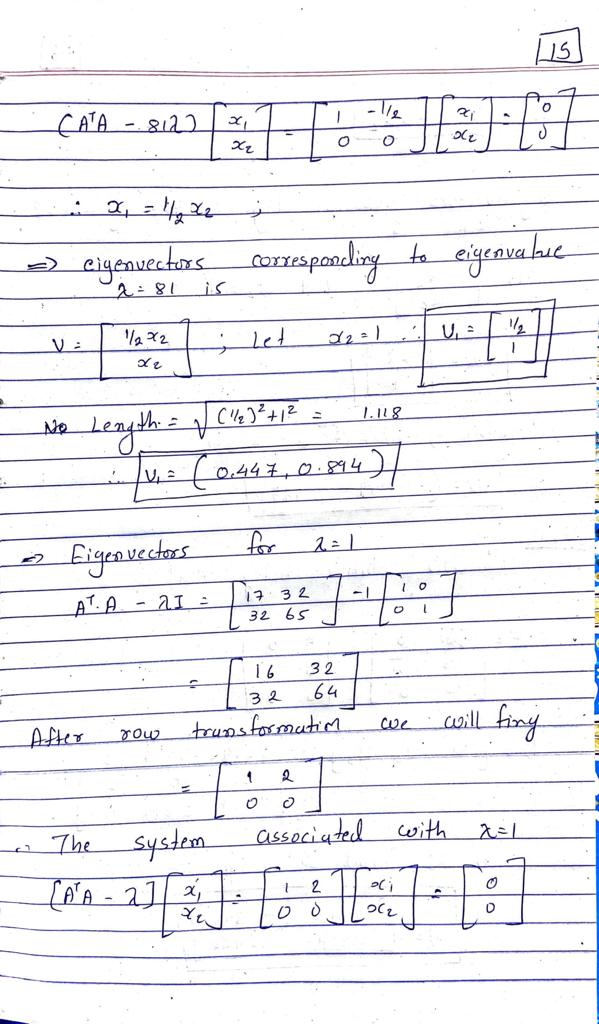 15
(AᵀA - 81λ) [x₁ x₂] = [1 -1/2 0 0] [x₁ x₂] = [0 0]
∴ x₁ = 1/2 x₂ ;
=> eigenvectors corresponding to eigenvalue
λ = 81 is
V = [1/2 x₂ x₂] ; Let x₂ = 1 ∴ U₁ = [1/2 1]
Length = √(1/2)² + 1² = 1.118
∴ V₁ = (0.447, 0.894)
=> Eigenvectors for λ = 1
Aᵀ.A - λI = [17 32 32 65] - 1 [1 0 0 1]
= [16 32 32 64]
After row transformation we will finy
= [1 2 0 0]
∴ The system associated with λ = 1
[AᵀA - λ] [x₁ x₂] = [1 2 0 0] [x₁ x₂] = [0 0]